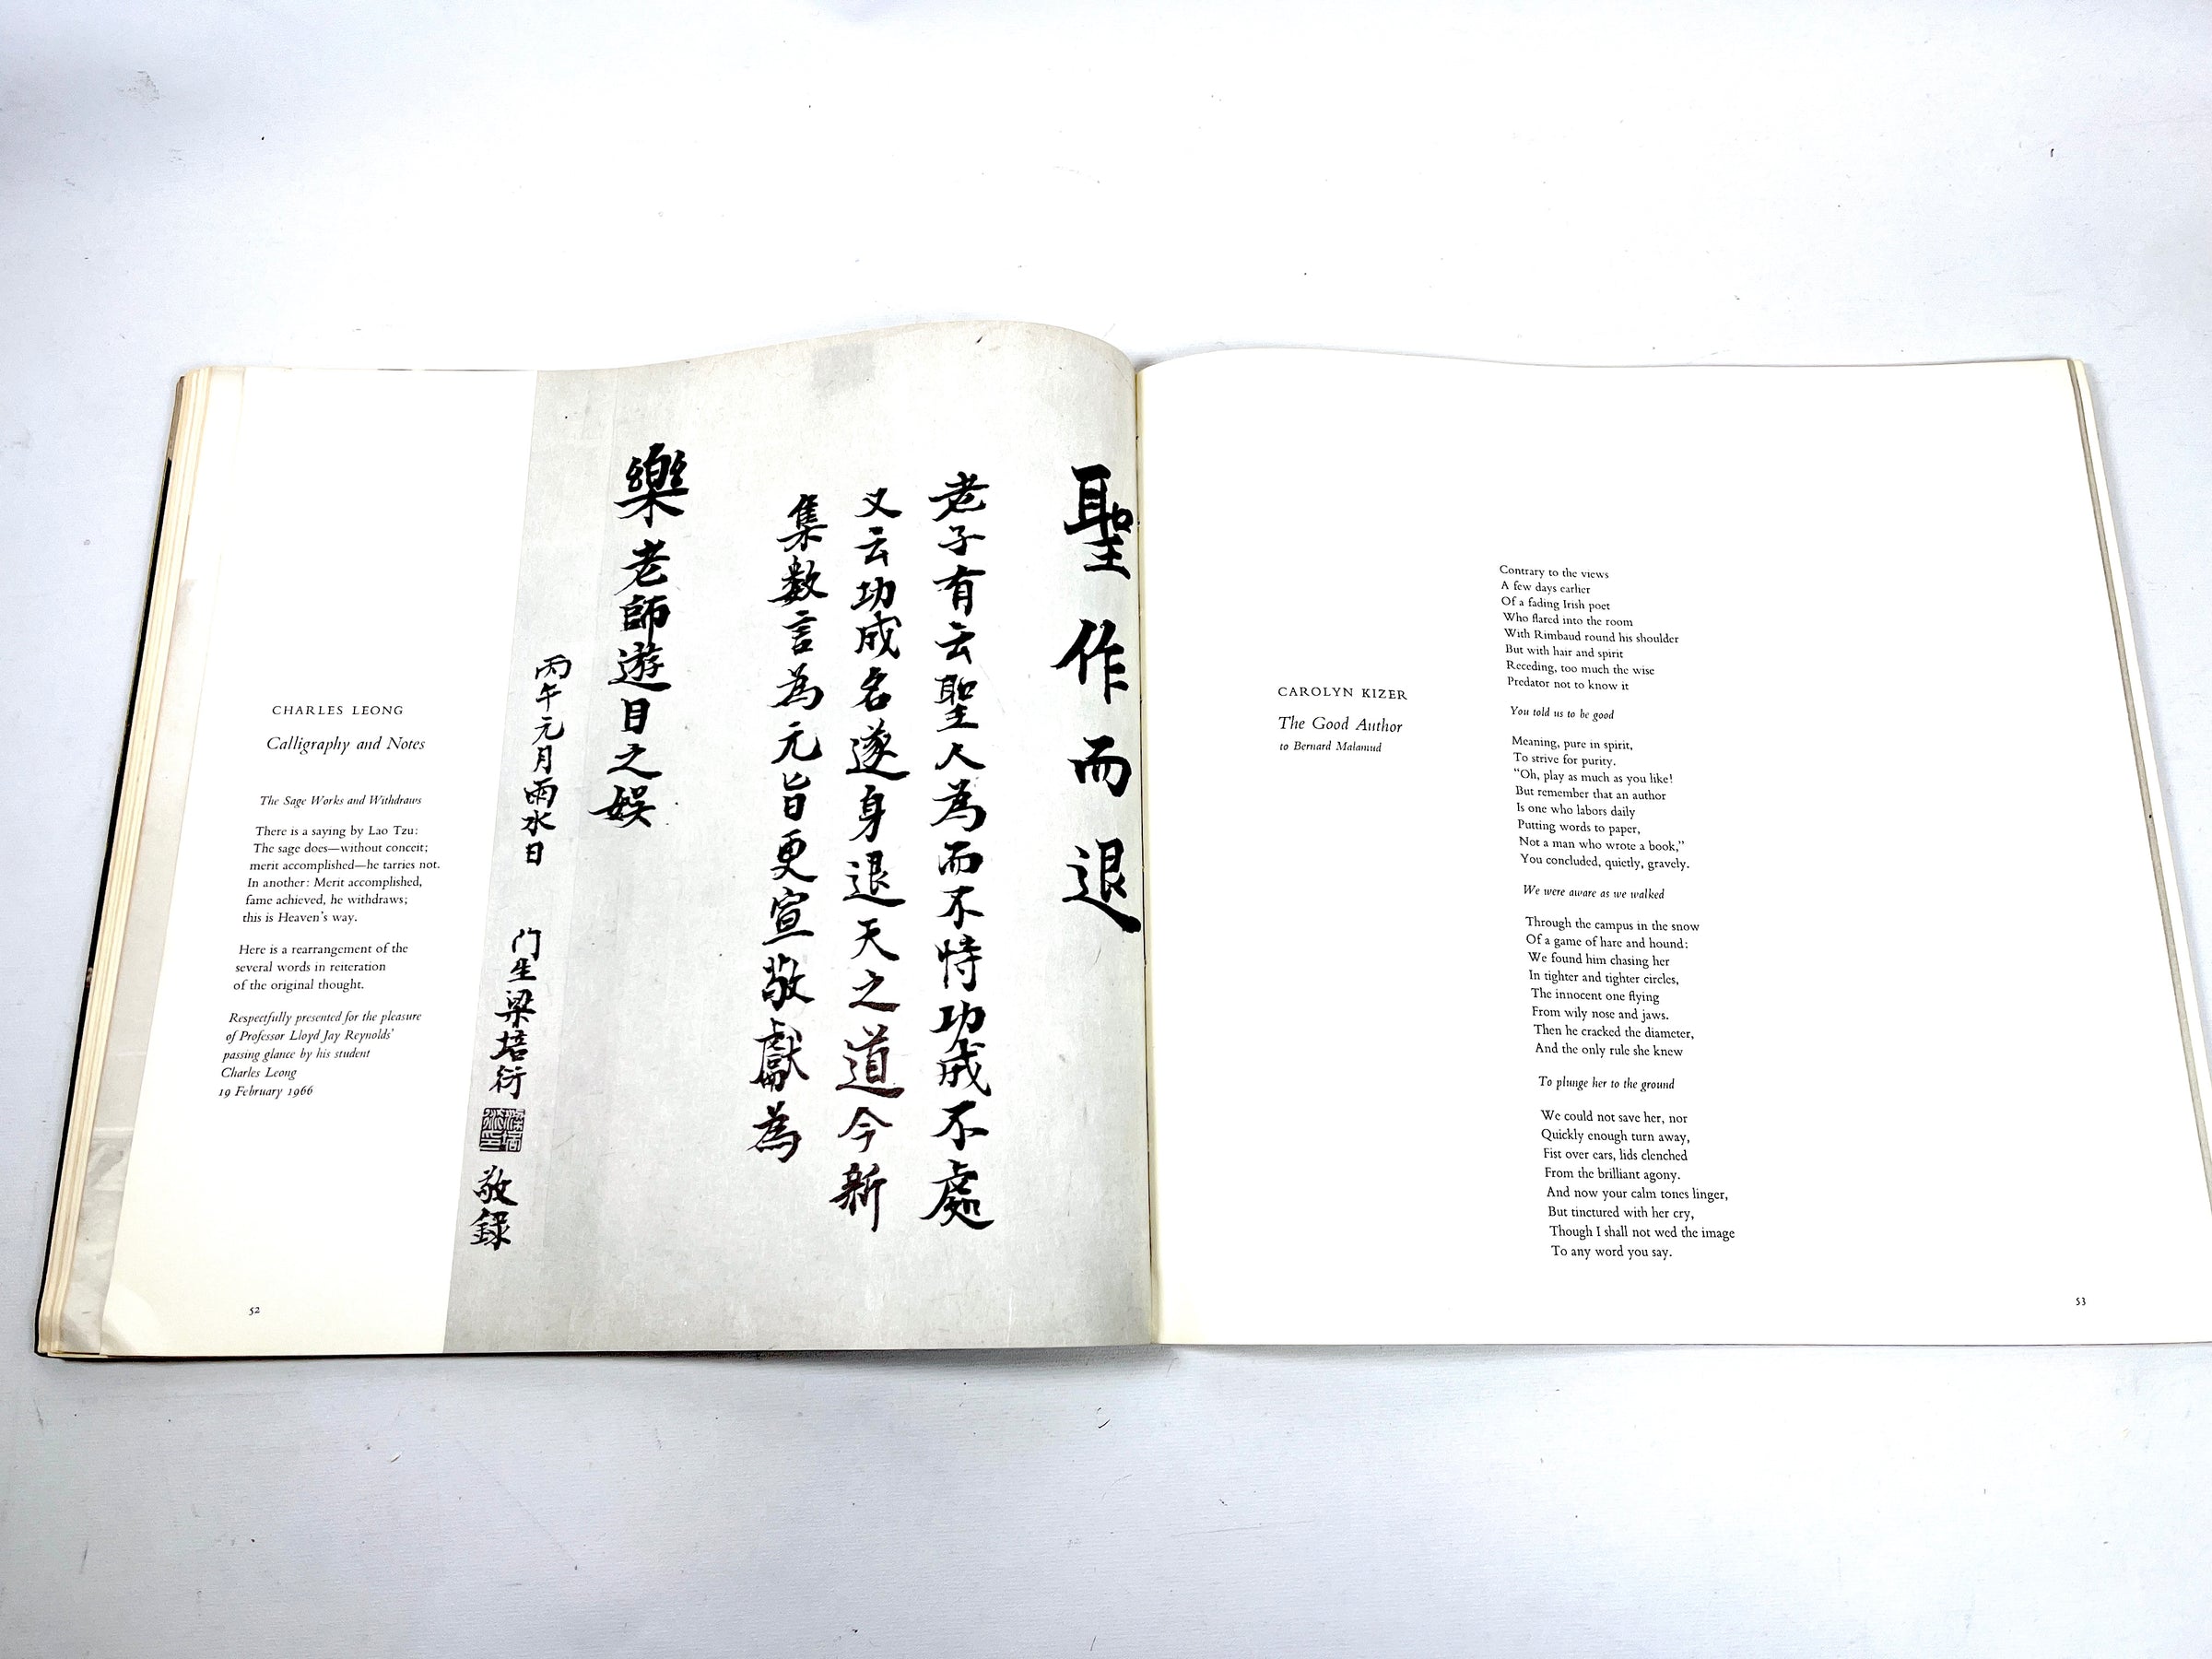 CHARLES LEONG
Calligraphy and Notes
The Sage Works and Withdraws
There is a saying by Lao Tzu:
The sage does—without conceit;
merit accomplished—he tarries not.
In another: Merit accomplished,
fame achieved, he withdraws;
this is Heaven's way.
Here is a rearrangement of the
several words in reiteration
of the original thought.
Respectfully presented for the pleasure
of Professor Lloyd Jay Reynolds'
passing glance by his student
Charles Leong
19 February 1966
52
聖作而退
老子有云聖人為而不恃功成不處
又云功成名遂身退天之道今新
集數言為元旨更宣敬獻為
樂老師遊目之娛
丙午元月雨水日
门生梁培衍
敬録
CAROLYN KIZER
The Good Author
to Bernard Malamud
Contrary to the views
A few days earlier
Of a fading Irish poet
Who flared into the room
With Rimbaud round his shoulder
But with hair and spirit
Receding, too much the wise
Predator not to know it
You told us to be good
Meaning, pure in spirit,
To strive for purity.
"Oh, play as much as you like!
But remember that an author
Is one who labors daily
Putting words to paper,
Not a man who wrote a book,"
You concluded, quietly, gravely.
We were aware as we walked
Through the campus in the snow
Of a game of hare and hound:
We found him chasing her
In tighter and tighter circles,
The innocent one flying
From wily nose and jaws.
Then he cracked the diameter,
And the only rule she knew
To plunge her to the ground
We could not save her, nor
Quickly enough turn away,
Fist over ears, lids clenched
From the brilliant agony.
And now your calm tones linger,
But tinctured with her cry,
Though I shall not wed the image
To any word you say.
53